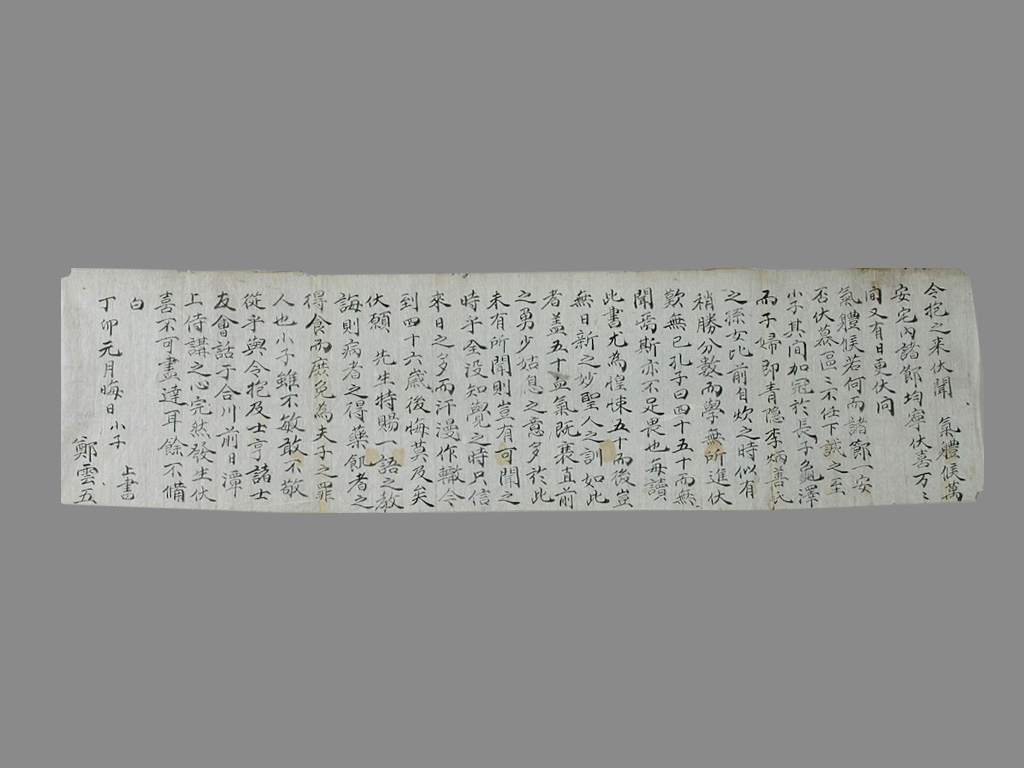 令抱之来伏聞 氣體候萬
安宅內諸節均寧伏喜万〻
間又有日更伏問
氣體候若何而諸節一安
否伏慕區〻不任下誠之至
小子其間加冠於長子龜澤
而子婦即青隐李炳善氏
之孫女比前自炊之時似有
稍勝分數而學無所進伏
歎無已孔子曰四十五十而無
聞焉斯亦不足畏也每讀
此書尤為惶悚五十而後豈
無日新之妙聖人之訓如此
者盖五十血氣既衰直前
之勇少姑息之意多於此
未有所聞則豈有可聞之
時乎全沒知覺之時只信
來日之多而汗漫作轍今
到四十六歲後悔莫及矣
伏願 先生特賜一語之教
誨則病者之得藥飢者之
得食而庶免為夫子之罪
人也小子雖不敏敢不敬
從乎與令抱及士亨諸士
友會話于合川前日潭
上侍講之心完然發生伏
喜不可盡達耳餘不備
白
丁卯元月晦日小子
鄭雲五
上書